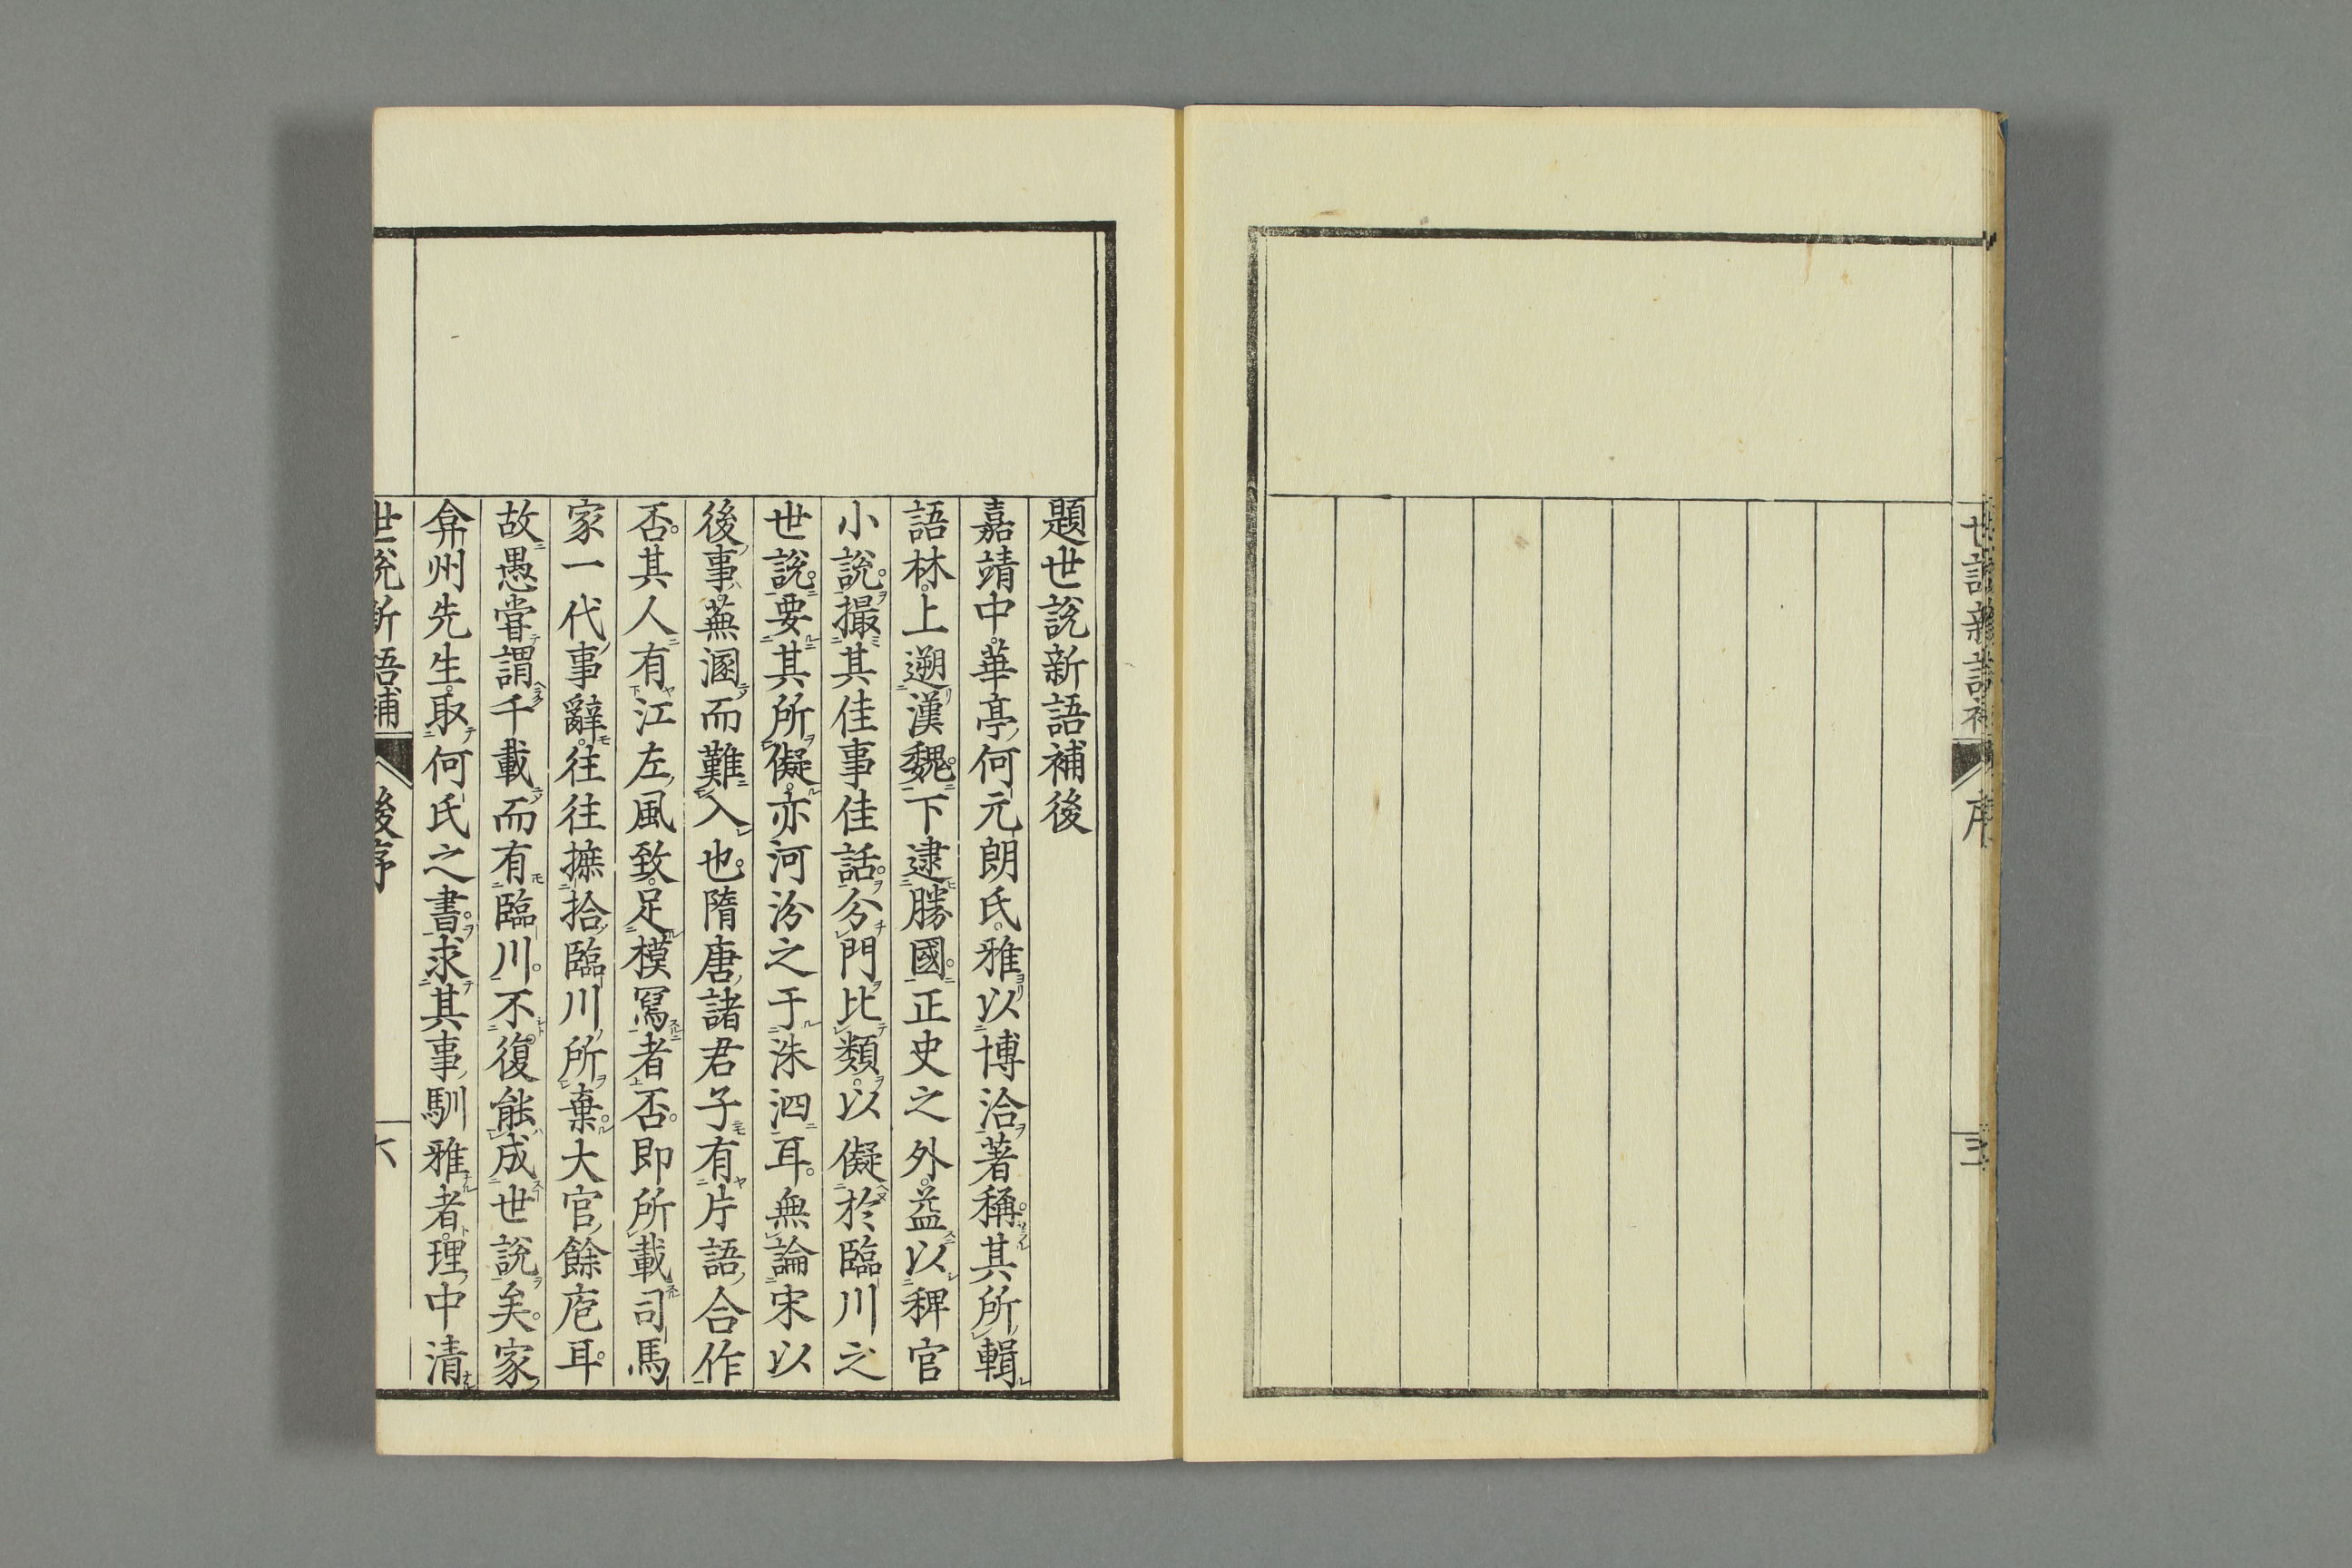 世說新語補 序 三
題世說新語補後
嘉靖中華亭何元朗氏雅以博洽著稱其所輯
語林上遡漢魏下逮勝國正史之外益以稗官
小說撮其佳事佳話分門比類以儗於臨川之
世說要其所儗亦河汾之于洙泗耳無論宋以
後事蕪溷而難入也隋唐諸君子有片語合作
否其人有江左風致足模冩者否即所載司馬
家一代事辭往往摭拾臨川所棄大官餘庖耳
故愚嘗謂千載而有臨川不復能成世說矣家
弇州先生取何氏之書求其事馴雅者理中清
世說新語補 後序 六